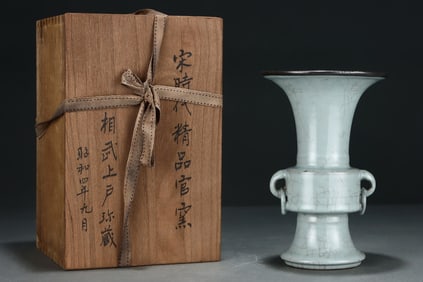 宋時代精品官窯
相武上戸珍藏
昭和四年九月